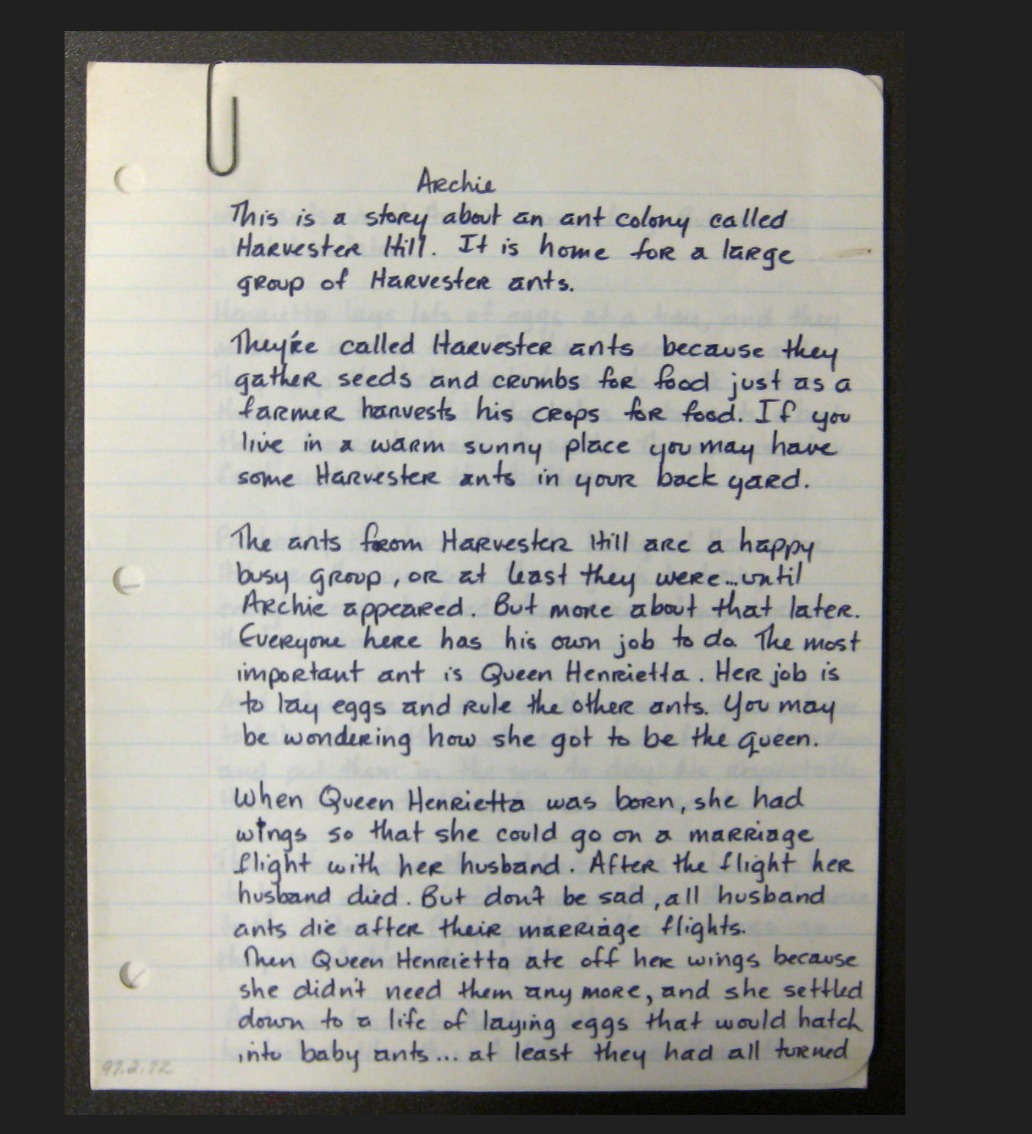 Archie
This is a story about an ant colony called
Harvester Hill. It is home for a large
group of Harvester ants.
They're called Harvester ants because they
gather seeds and crumbs for food just as a
farmer harvests his crops for food. If you
live in a warm sunny place you may have
some Harvester ants in your back yard.
The ants from Harvester Hill are a happy
busy group, or at least they were...until
Archie appeared. But more about that later.
Everyone here has his own job to do The most
important ant is Queen Henrietta. Her job is
to lay eggs and rule the other ants. You may
be wondering how she got to be the queen.
When Queen Henrietta was born, she had
wings so that she could go on a marriage
flight with her husband. After the flight her
husband died. But don't be sad, all husband
ants die after their marriage flights.
Then Queen Henrietta ate off her wings because
she didn't need them any more, and she settled
down to a life of laying eggs that would hatch
into baby ants... at least they had all turned
97.2.72